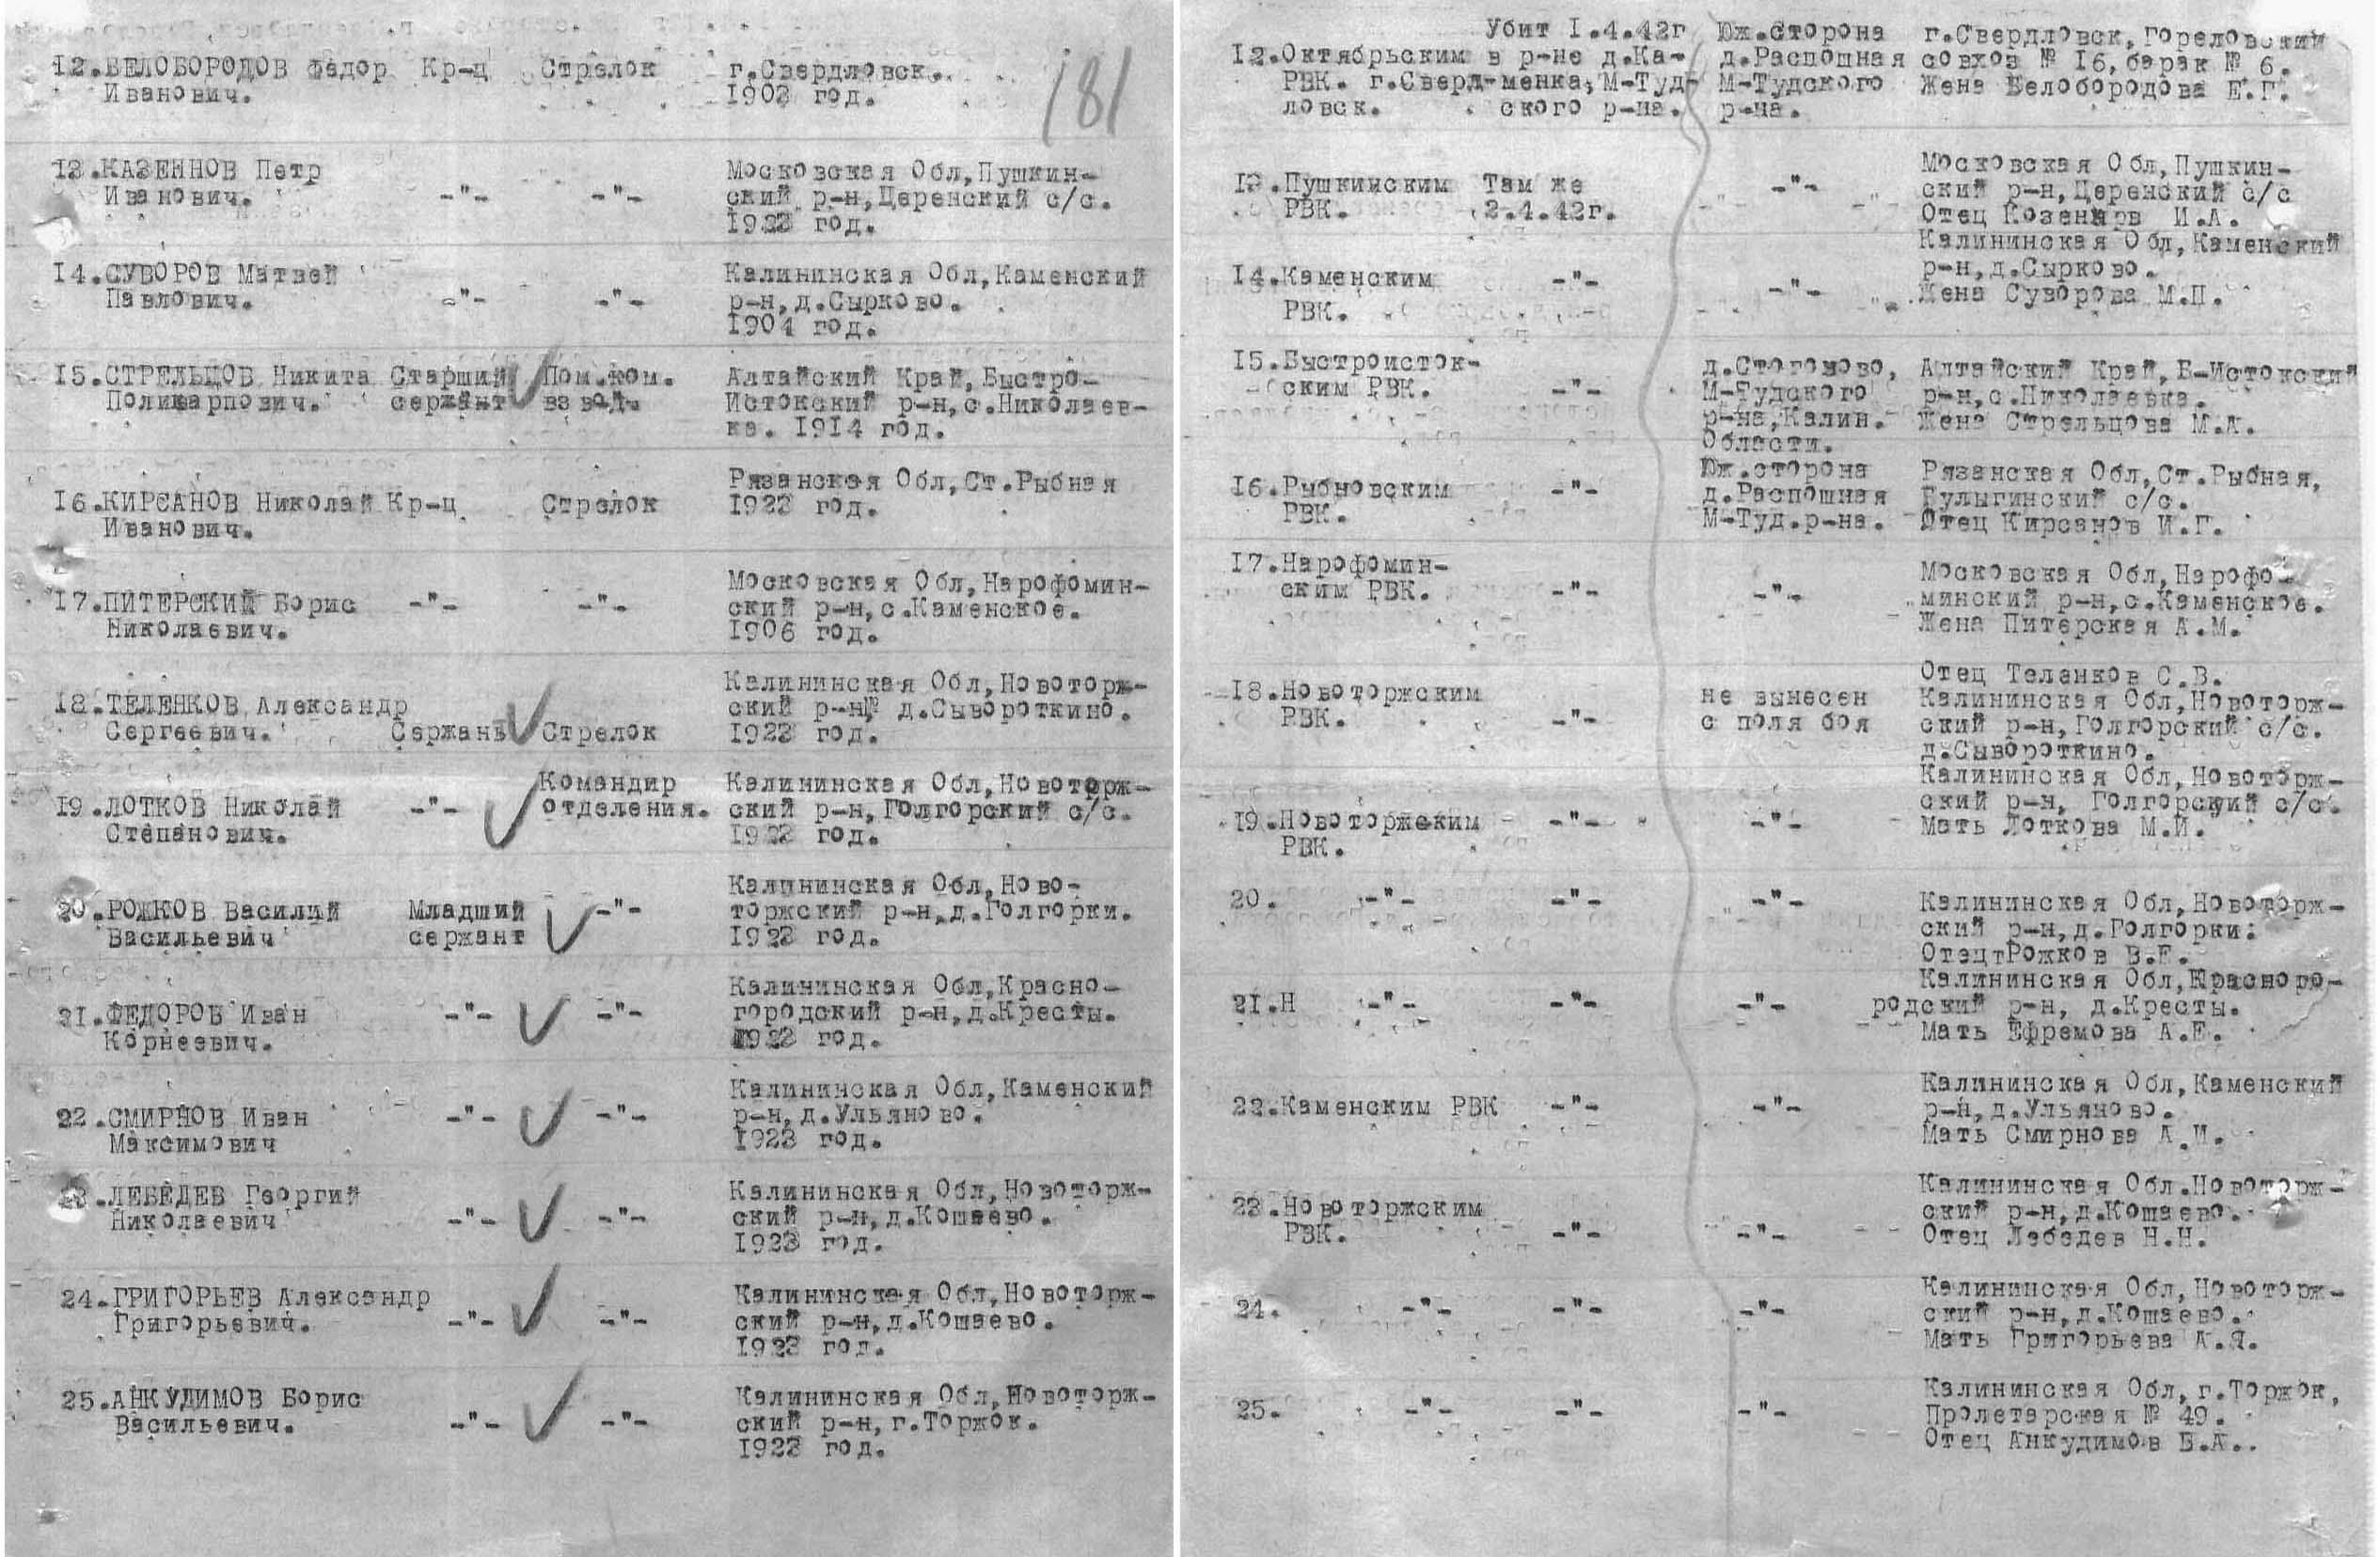 181
12.БЕЛОБОРОДОВ Федор Кр-ц Стрелок г.Свердловск.
Иванович. 1903 год.
13.КАЗЕННОВ Петр Московская Обл,Пушкин-
Иванович. -"- -"- ский р-н,Церенский с/с.
1923 год.
14.СУВОРОВ Матвей Калининская Обл,Каменский
Павлович. -"- -"- р-н,д.Сырково.
1904 год.
15.СТРЕЛЬЦОВ Никита Старший Пом.ком. Алтайский Край,Быстро-
Поликарпович. сержант взвод. Истокский р-н,с.Николаев-
ка. 1914 год.
Рязанская Обл,Ст.Рыбная
16.КИРСАНОВ Николай Кр-ц Стрелок 1923 год.
Иванович.
Московская Обл,Нарофомин-
17.ПИТЕРСКИЙ Борис -"- -"- ский р-н,с.Каменское.
Николаевич. 1906 год.
Калининская Обл,Новоторж-
18.ТЕЛЕНКОВ Александр ский р-н, д.Сывороткино.
Сергеевич. Сержант Стрелок 1923 год.
Командир Калининская Обл,Новоторж-
19.ЛОТКОВ Николай -"- отделения. ский р-н,Голгорский с/с.
Степанович. 1923 год.
Калининская Обл,Ново-
20.РОЖКОВ Василий Младший -"- торжский р-н,д.Голгорки.
Васильевич сержант 1923 год.
Калининская Обл,Красно-
21.ФЕДОРОВ Иван -"- -"- городский р-н,д.Кресты.
Корнеевич. 1923 год.
Калининская Обл,Каменский
22.СМИРНОВ Иван -"- -"- р-н,д.Ульяново.
Максимович 1923 год.
23.ЛЕБЕДЕВ Георгий Калининская Обл,Новоторж-
Николаевич -"- -"- ский р-н,д.Кошаево.
1923 год.
24.ГРИГОРЬЕВ Александр Калининская Обл,Новоторж-
Григорьевич. -"- -"- ский р-н,д.Кошаево.
1923 год.
25.АНКУДИМОВ Борис Калининская Обл,Новоторж-
Васильевич. -"- -"- ский р-н,г.Торжок.
1923 год.
Убит 1.4.42г Юж.сторона г.Свердловск,Гореловский
12.Октябрьским в р-не д.Ка- д.Распошная совхоз № 16,барак № 6.
РВК. г.Сверд-менка,М-Туд- М-Тудского Жена Белобородова Е.Г.
ловск. ского р-на. р-на.
Московская Обл,Пушкин-
13.Пушкинским Там же -"- ский р-н,Церенский с/с
РВК. 2.4.42г. Отец Козеннов И.А.
Калининская Обл,Каменский
14.Каменским -"- -"- р-н,д.Сырково.
РВК. Жена Суворова М.П.
15.Быстроисток- д.Стогоново, Алтайский Край,Б-Истокский
ским РВК. -"- М-Тудского р-н,с.Николаевка.
р-на,Калин. Жена Стрельцова М.А.
Области.
Юж.сторона Рязанская Обл,Ст.Рыбная,
16.Рыбновским -"- д.Распошная Булыгинский с/с.
РВК. М-Туд.р-на. Отец Кирсанов И.Г.
17.Нарофомин- Московская Обл,Нарофо-
ским РВК. -"- -"- минский р-н,с.Каменское.
Жена Питерская А.М.
Отец Теленков С.В.
18.Новоторжским не вынесен Калининская Обл,Новоторж-
РВК. -"- с поля боя ский р-н,Голгорский с/с.
д.Сывороткино.
Калининская Обл,Новоторж-
19.Новоторжским -"- -"- ский р-н, Голгорский с/с.
РВК. Мать Лоткова М.И.
20. -"- -"- -"- Калининская Обл,Новоторж-
ский р-н,д.Голгорки.
ОтецтРожков В.Е.
Калининская Обл,Красного-
21.Н -"- -"- -"- родский р-н, д.Кресты.
Мать Ефремова А.Е.
Калининская Обл,Каменский
22.Каменским РВК -"- -"- р-н,д.Ульяново.
Мать Смирнова А.И.
23.Новоторжским Калининская Обл.Новоторж-
РВК. -"- -"- ский р-н,д.Кошаево.
Отец Лебедев Н.Н.
Калининская Обл,Новоторж-
24. -"- -"- -"- ский р-н,д.Кошаево.
Мать Григорьева А.Я.
Калининская Обл,г.Торжок,
25. -"- -"- -"- Пролетарская № 49.
Отец Анкудимов В.А..